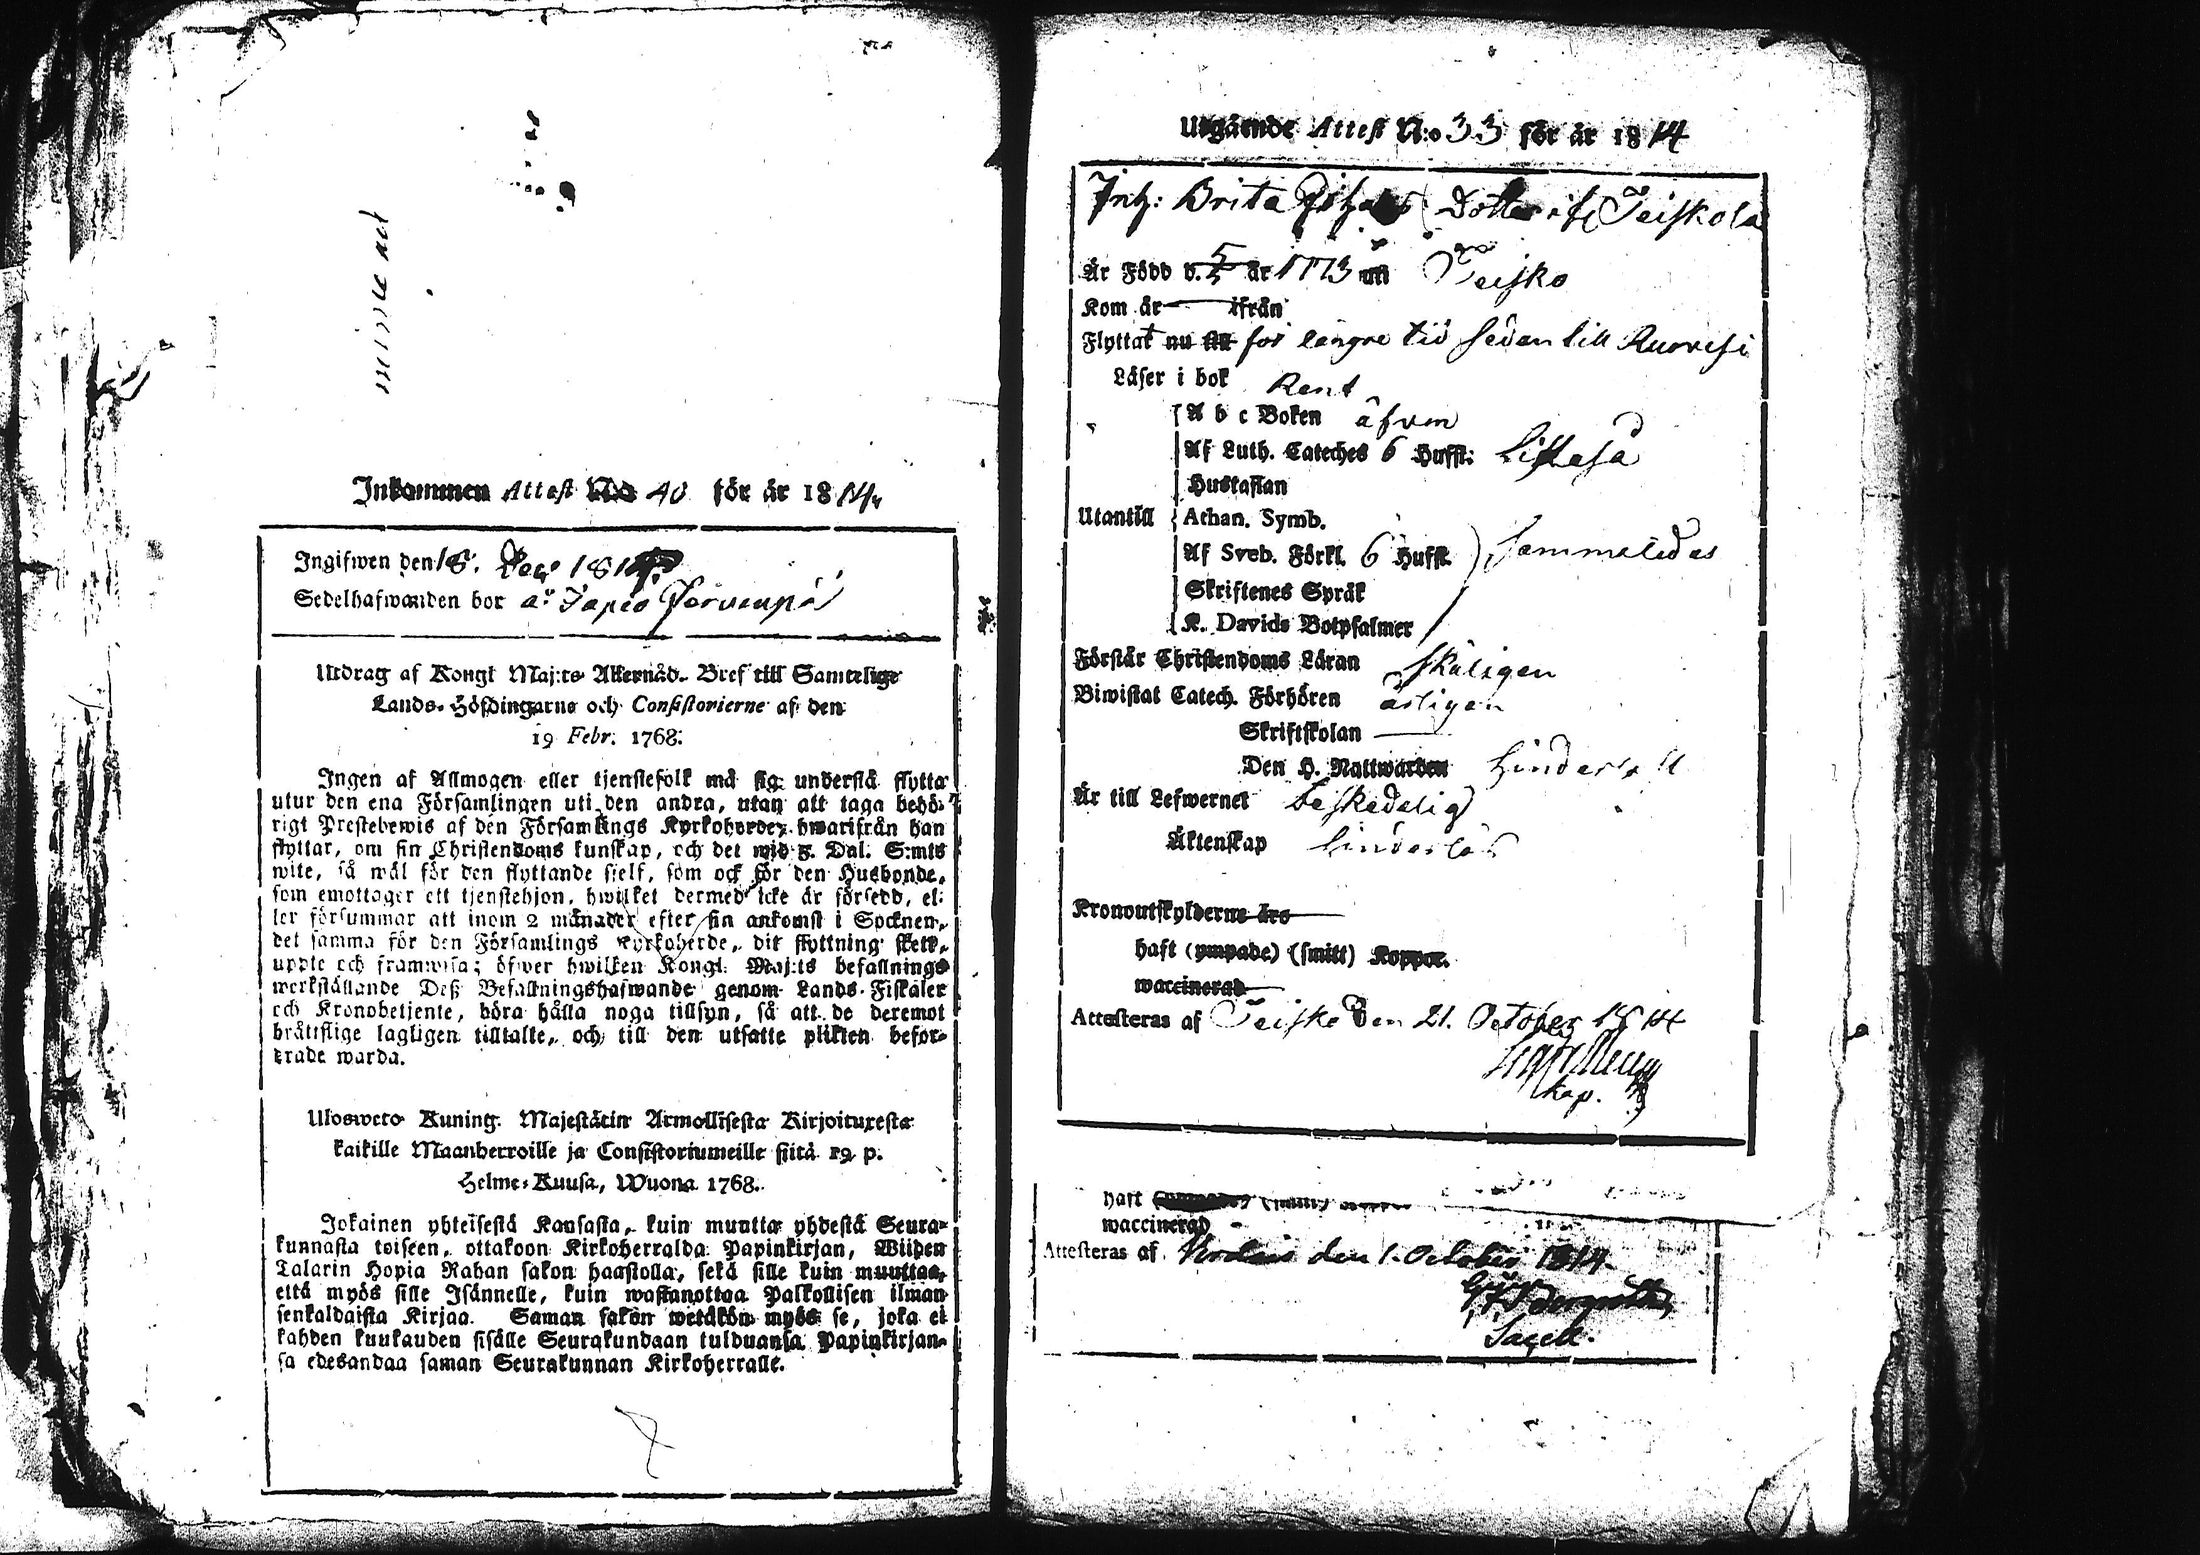 Inkommen Attest N:o 40 för år 1814
Ingifwen den 18. Dec. 181
Sedelhafwanden bor å Tapio Jerwenpä
Utdrag af Kongl Maj:ts Allernåd. Bref till Samtelige
Lands-Höfdingarne och Consistorierne af den
19 Febr. 1768.
Ingen af Allmogen eller tjenstefolk må sig understå flytta
utur den ena Församlingen uti den andra, utan att taga behö-
rigt Prestebewis af den Församlings Kyrkoherde, hwarifrån han
flyttar, om sin Christendoms kunskap, och det wid 5. Dal. S:mts
wite, så wäl för den flyttande sielf, som ock för den Husbonde,
som emottager ett tjenstehjon, hwilket dermed icke är försedd, el-
ler försummar att inom 2 månader efter sin ankomst i Socknen,
det samma för den Församlings Kyrkoherde, dit flyttning skett,
uppte och framwisa; öfwer hwilken Kongl. Maj:ts befallnings
werkställande Deß Befallningshafwande genom Lands-Fiskaler
och Kronobetjente, böra hålla noga tillsyn, så att de deremot
bråttslige lagligen tilltalte, och till den utsatte plikten befor-
drade warda.
Ulosweto Kuning. Majestätin Armollisesta Kirjoituxesta
kaikille Maanherroille ja Consistoriumeille siitä 19 p.
Helme-Kuusa, Wuona 1768.
Jokainen yhteisestä Kansasta, kuin muutta yhdestä Seura-
kunnasta toiseen, ottakoon Kirkoherralda Papinkirjan, Wiiden
Talarin Hopia Rahan sakon haastolla, sekä sille kuin muuttaa,
että myös sille Isännelle, kuin wastanottaa Palkollisen ilman
senkaldaista Kirjaa. Saman sakon wetäkön myös se, joka ei
kahden kuukauden sisälle Seurakundaan tulduansa Papinkirjan-
sa edesandaa saman Seurakunnan Kirkoherralle.
Utgående Attest N:o 33 för år 1814
Inh: Brita Dotter ifr Teiskola
Är Född d. år 1773 uti Teisko
Kom år ifrån
Flyttat nu till för längre tid sedan till Ruovesi
Läser i bok Rent
A b c Boken äfven
Af Luth. Cateches 6 Hufst: likaså
Hustaflan
Utantill Athan. Symb.
Af Sveb. Förkl. 6 Hufst. sammaledes
Skriftenes Språk
K. Davids Botpsalmer
Förstår Christendoms Läran skäligen
Biwistat Catech. Förhören årligen
Skriftskolan
Den H. Nattwarden
Är till Lefwernet beskedelig
Äktenskap hinderlös
Kronoutskylderne äro
haft (ympade) (smitt) Koppor.
waccinerad
Attesteras af Teisko den 21. October 1814
kap.
haft
waccinerad
Attesteras af den 1. October 1814.
Sacell.